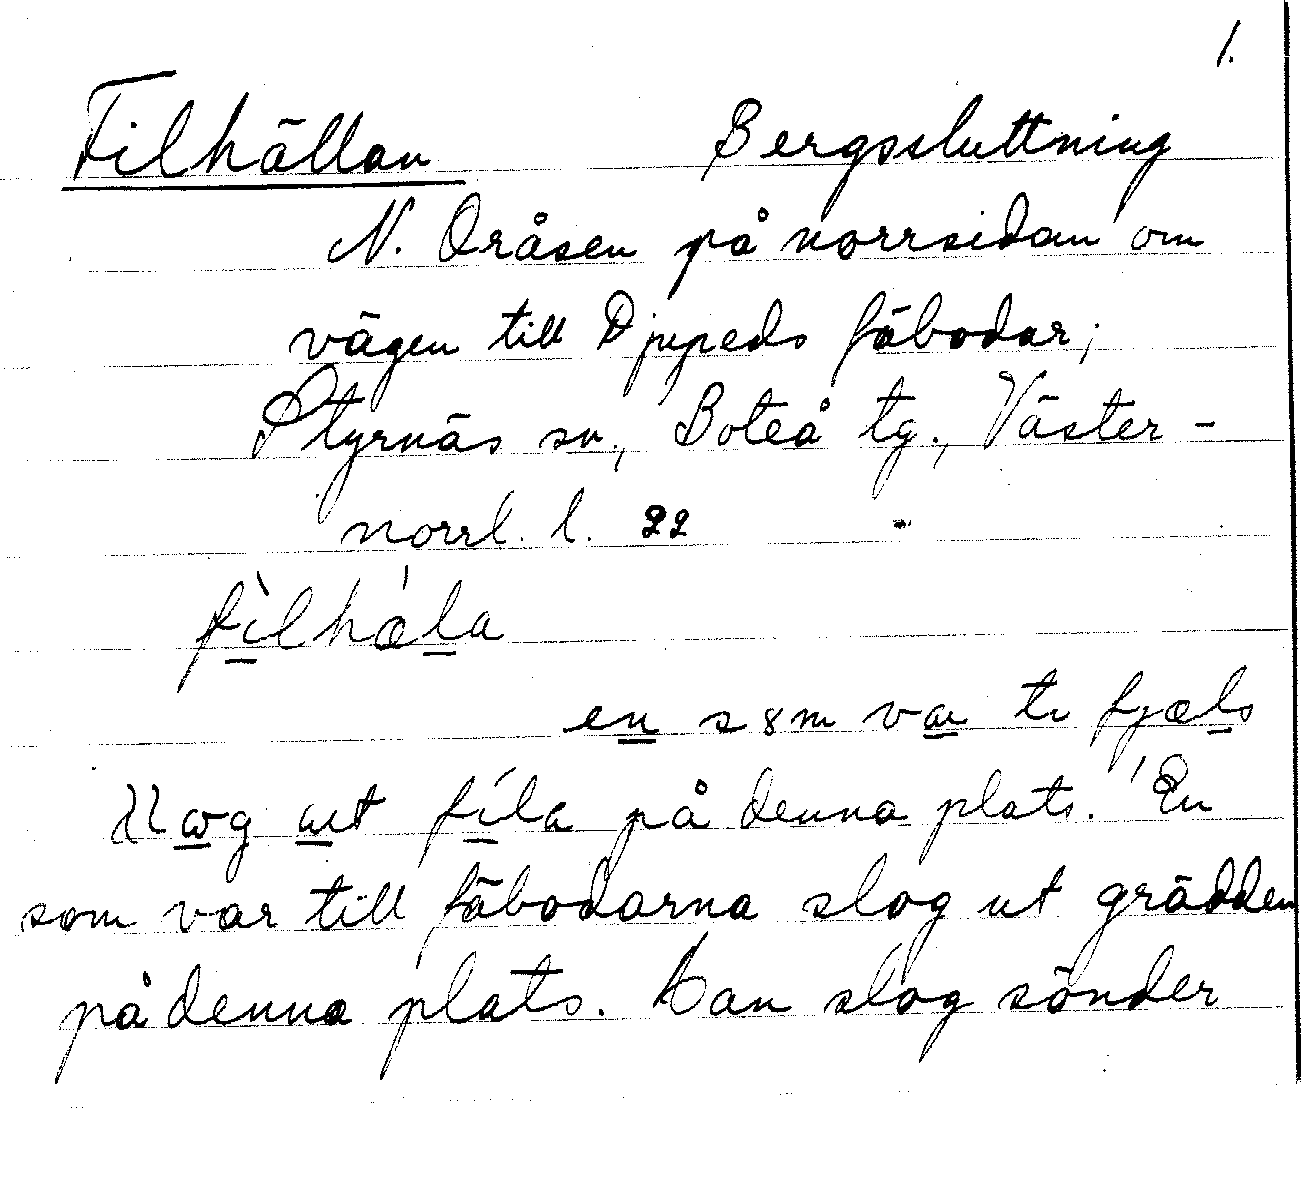 1.
Filhällan Bergssluttning
N. Oråsen på norrsidan om
vägen till Djupeds fäbodar;
Styrnäs sn, Boteå tg., Väster-
norrl. l. 22
fìlhǽla
en som var ti fjæls
att fíla på denna plats. En
som var till fäbodarna slog ut grädden
på denna plats. Han slog sönder